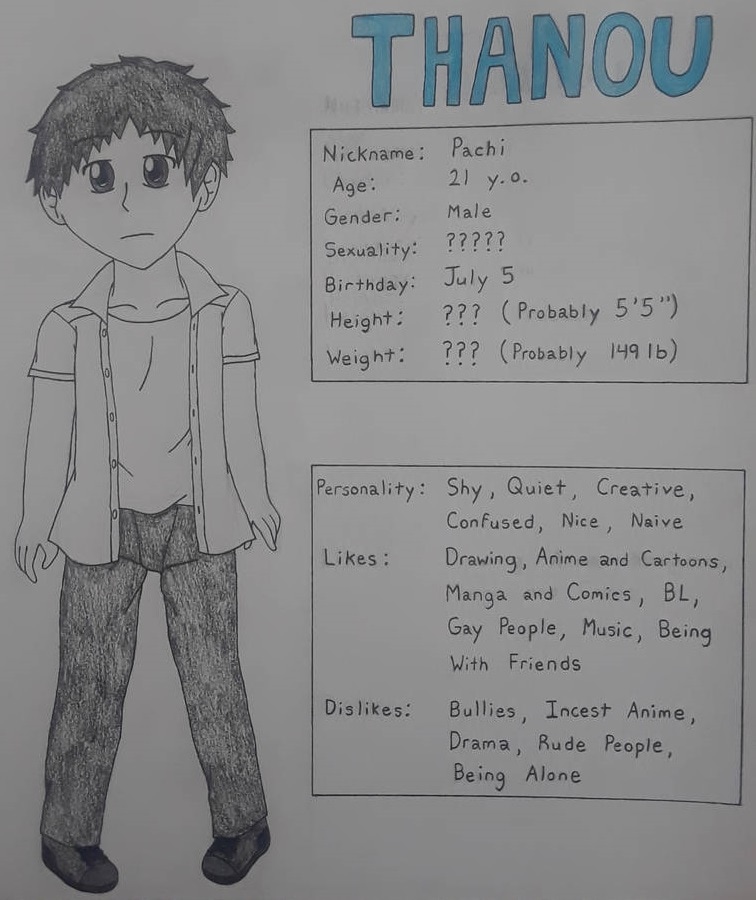 THANOU
Nickname: Pachi
Age: 21 y.o.
Gender: Male
Sexuality: ?????
Birthday: July 5
Height: ??? (Probably 5'5")
Weight: ??? (Probably 149 lb)
Personality: Shy, Quiet, Creative,
Confused, Nice, Naive
Likes: Drawing, Anime and Cartoons,
Manga and Comics, BL,
Gay People, Music, Being
With Friends
Dislikes: Bullies, Incest Anime,
Drama, Rude People,
Being Alone